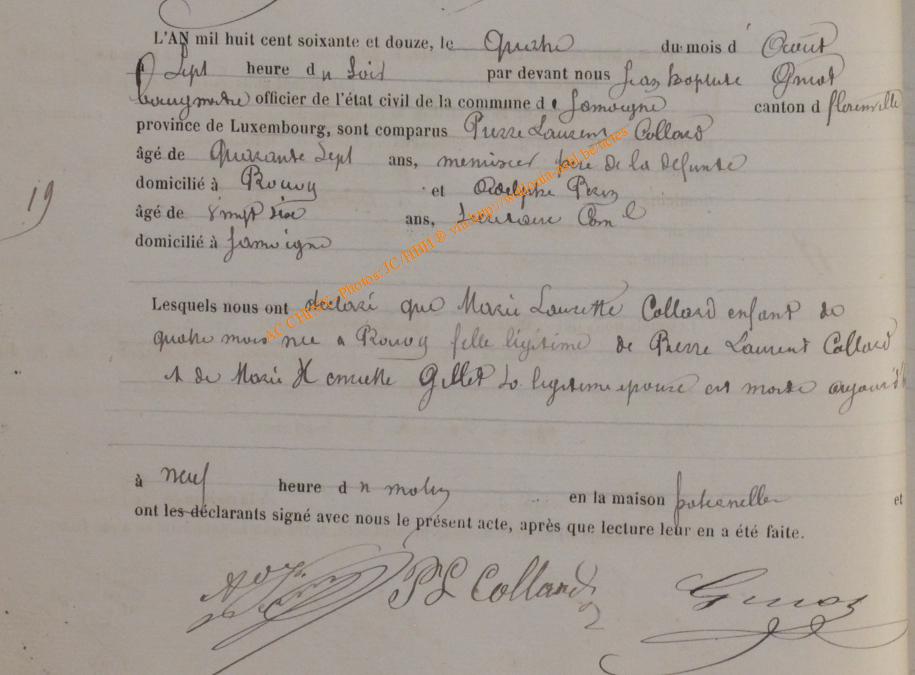 L'AN mil huit cent soixante et douze, le Quatre du mois d Août
à Sept heure du Soir par devant nous Jean Baptiste
bourgmestre officier de l'état civil de la commune de Jamoigne canton d florenville
province de Luxembourg, sont comparus Pierre Laurent Collard
âgé de Quarante Sept ans, menuisier père de la défunte
domicilié à Rouvoy et Adolphe
âgé de vingt six ans, Com^l
domicilié à Jamoigne
19
Lesquels nous ont déclaré que Marie Laurette Collard enfant de
quatre mois née a Rouvoy fille légitime de Pierre Laurent Collard
et de Marie Henriette Gillet sa légitime épouse est morte aujourd'h
à neuf heure du matin en la maison paternelle et
ont les déclarants signé avec nous le présent acte, après que lecture leur en a été faite.
PL Collard
AC CHINY- Photos: JC/HHH ® via http://wallonia.asbl.be/actes